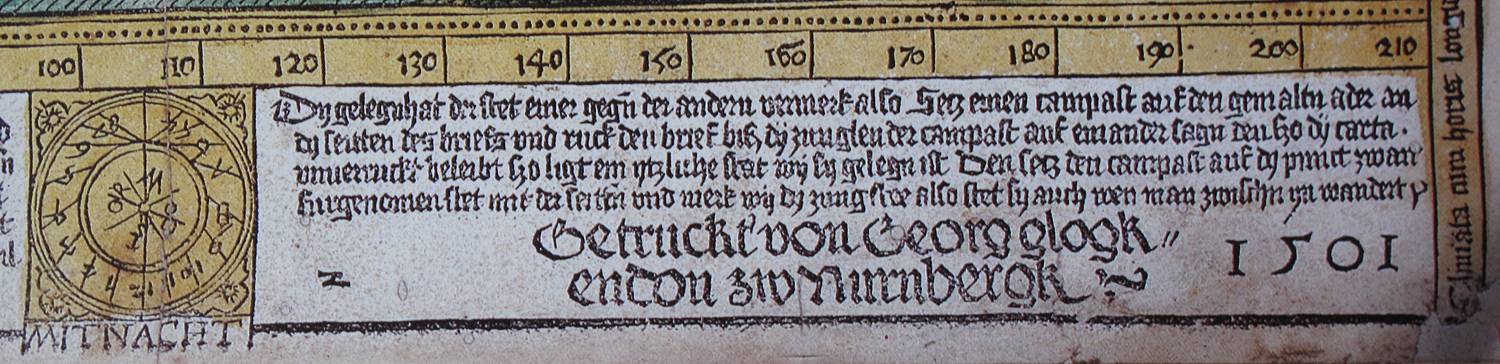 100 110 120 130 140 150 160 170 180 190 200 210
Dy gelegnhat der stet einer gegn der andern vermerk also Setz einen campast auf den gemaltn ader an
dy seitten des briefs vnd ruck den brief bis dy zunglen der campast auf einander sagn den so dy carta
vnuerruckt beleibt so ligt ein ytzliche stat wy sy gelegn ist Den setz den campast auf dy punct zwayr
furgenomen stet mit der seiten vnd merk wy dy zung stee also stet sy auch wen man zwischn yn wandert
Getruckt von Georg glogk
endon zw Nurnbergk 1501
MITNACHT
Climata cum horis